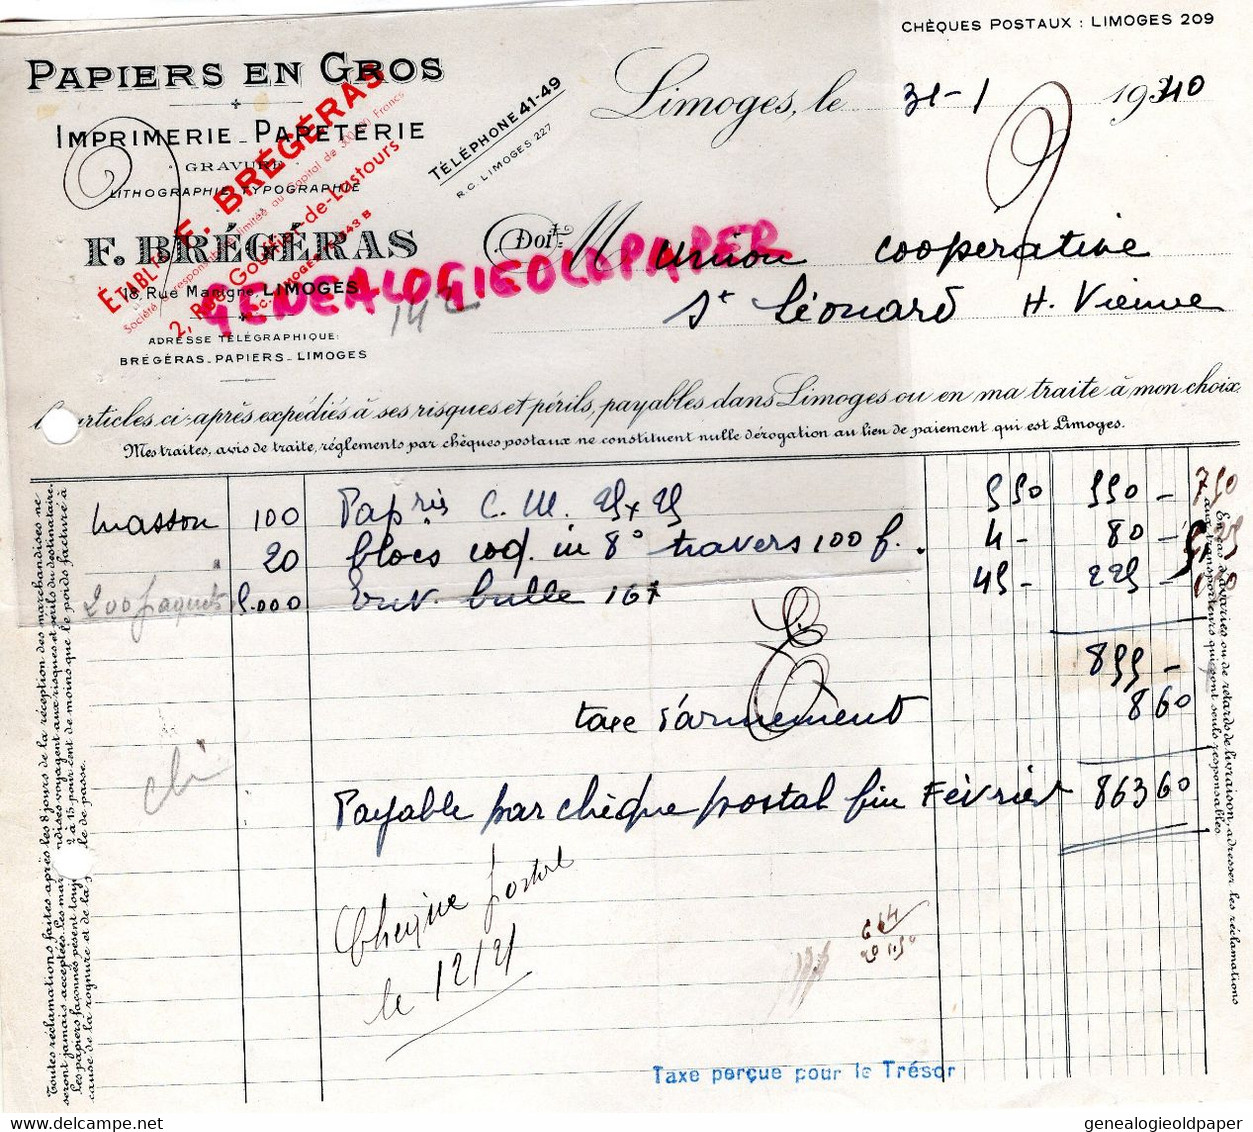 CHÈQUES POSTAUX : LIMOGES 209
PAPIERS EN GROS
IMPRIMERIE_PAPETERIE
GRAVURE
LITHOGRAPHIE_TYPOGRAPHIE
F. BRÉGÉRAS
18, Rue Manigne LIMOGES
ADRESSE TÉLÉGRAPHIQUE:
BRÉGÉRAS_PAPIERS_LIMOGES
ÉTABL F. BRÉGÉRAS
Société à responsabilité limitée au Capital de Francs
2, Rue Gouffier-de-Lastours
TÉLÉPHONE 41-49
R.C. LIMOGES 227
GENEALOGIEOLDPAPER
142
Limoges, le 31-1 1940
Doit M Union cooperative
St Léonard H. Vienne
articles ci-après expédiés à ses risques et périls, payables dans Limoges ou en ma traite à mon choix.
Mes traites, avis de traite, réglements par chèques postaux ne constituent nulle dérogation au lieu de paiement qui est Limoges.
Masson 100 C. M. 25x25 550 550 -
20 blocs in 8° travers 100 f. 4 - 80 -
200 paquets 5.000 Env. bulle 167 45 - 225 -
855 -
taxe d'armement 8 60
863 60
Payable par chèque postal fin Février
Cheque postal
le 12/2/
Taxe perçue pour le Trésor
Toutes réclamations faites après les 8 jours de la réception des marchandises ne
seront jamais acceptées. Les mar ndises voyagent aux risques et périls du destinataire.
Les papiers façonnés pèsent touj 2 à 15 pour cent de moins que le poids facturé à
cause de la rognure et de la le de passe.
En cas d'avaries ou de retards de livraison, adresser les réclamations
aux transporteurs qui sont seuls responsables
genealogieoldpaper